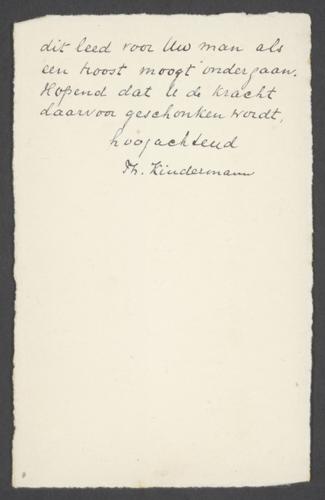 dit leed voor Uw man als
een troost moogt ondergaan.
Hopend dat U de kracht
daarvoor geschonken wordt,
hoogachtend
Th. Kindermann